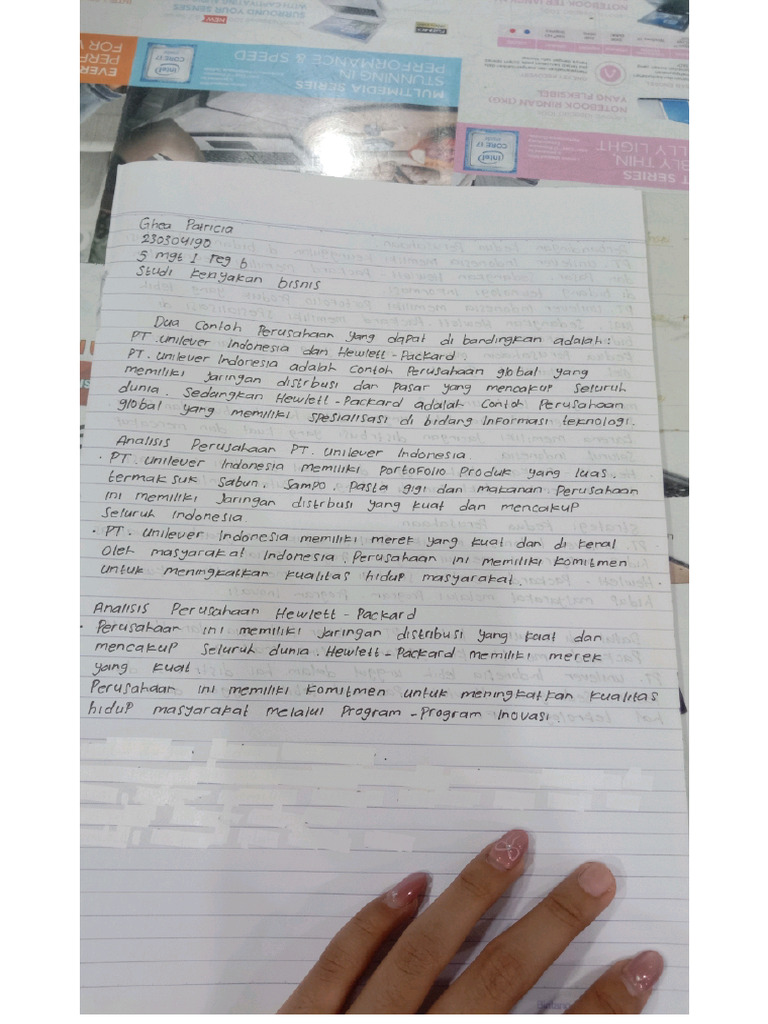 EVER
PERF
FOR V
intel
CORE i7
MULTIMEDIA SERIES
STUNNING IN
PERFORMANCE & SPEED
NEW
SURROUND YOUR SENSES
WITH CAPTIVATING
NOTEBOOK RINGAN (1KG)
YANG FLEKSIBEL
intel
CORE i7
T SERIES
BLY THIN,
LLY LIGHT
Ghea Patricia
230304190
5 mgt I reg b
Studi Kelayakan bisnis
Dua Contoh Perusahaan yang dapat di bandingkan adalah:
PT. unilever Indonesia dan Hewlett-Packard.
PT. unilever Indonesia adalah Contoh Perusahaan global yang
memiliki Jaringan distrbusi dan pasar yang mencakup seluruh
dunia. Sedangkan Hewlett-Packard adalah Contoh Perusahaan
global yang memiliki spesialisasi di bidang informasi teknologi.
Analisis Perusahaan PT. unilever Indonesia.
• PT. unilever Indonesia memiliki portofolio Produk yang luas.
termaksuk Sabun. Sampo. Pasta gigi dan makanan. Perusahaan
ini memiliki Jaringan distrbusi yang kuat dan mencakup
Seluruh Indonesia.
• PT. unilever Indonesia memiliki merek yang kuat dan di kenal
Oleh masyarakat Indonesia. Perusahaan ini memiliki komitmen
untuk meningkatkan kualitas hidup masyarakat.
Analisis Perusahaan Hewlett-Packard
• Perusahaan ini memiliki Jaringan distribusi yang kaat dan
mencakup seluruh dunia. Hewlett-Packard memiliki merek
yang kuat
Perusahaan ini memiliki komitmen untuk meningkatkan kualitas
hidup masyarakat melalui Program-Program Inovasi